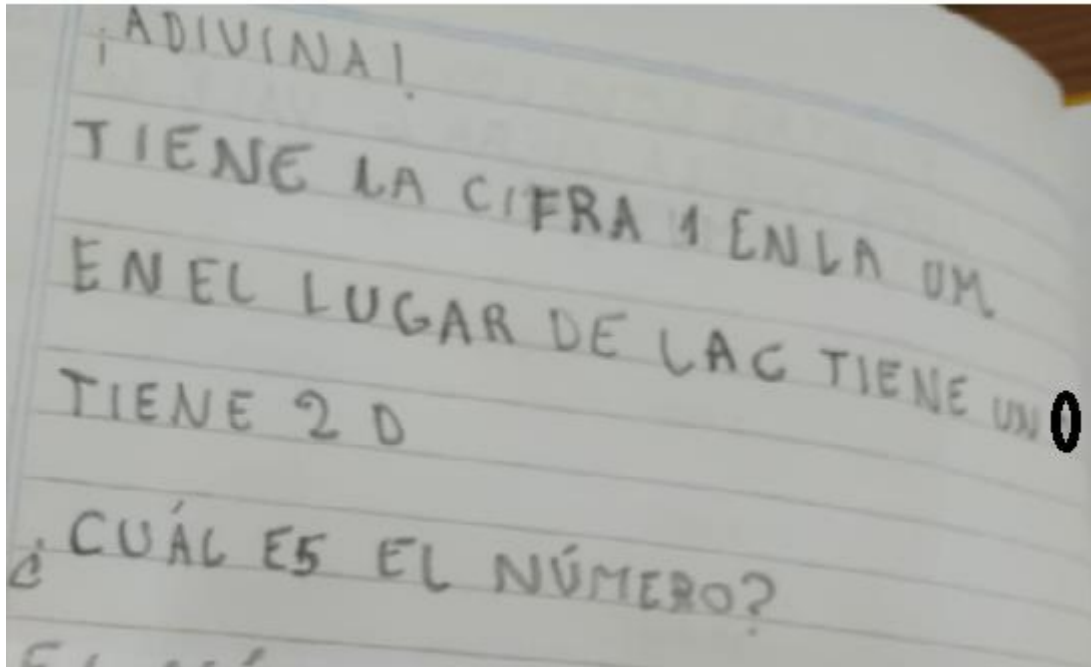 ¡ADIVINA!
TIENE LA CIFRA 1 EN LA UM
EN EL LUGAR DE LA C TIENE UN 0
TIENE 2 D
¿CUÁL ES EL NÚMERO?